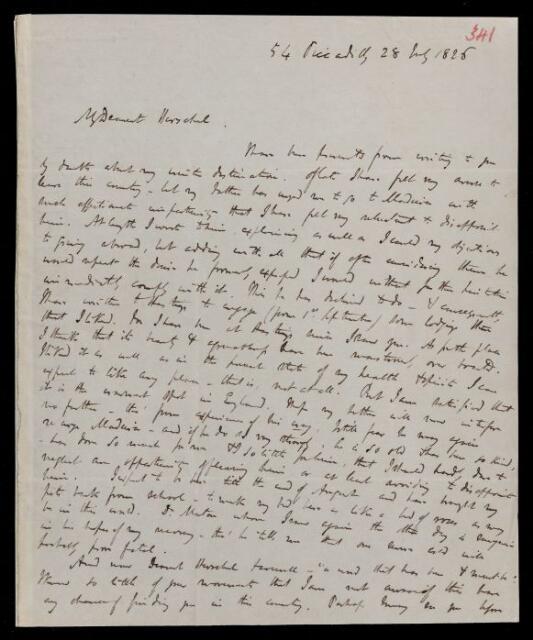 341
54 Piccadilly 28 July 1826
My Dearest Herschel.
I have been prevented from writing to you
by doubts about my winter destination. Of late I have felt very averse to
leave this country - but my brother has urged me to go to Madeira with
such affectionate importunity that I have felt very reluctant to disappoint
him. At length I wrote to him, explaining as well as I could my objections
to going abroad, but adding withall that if after considering them he
would repeat the desire he formerly expressed I would without further hesitation
immediately comply with it. This he has declined to do - & consequently
I have written to Hastings to engage (from 1st September) some lodging there
that I liked. For I have been at Hastings since I saw you. As for the place
I think that its beauty &
I liked it as well as in the present state of my health & spirits I can
expect to like any place - that is, not at all. But I am satisfied that
it is the warmest spot in England. I hope my brother will now interfere
no further - tho' from experience of his way, I still fear he may again
re urge Madeira - and if he do so very strongly, he is so old
- has done so much for me & I so little for him, that I should hardly dare to
neglect an opportunity of pleasing him or at least avoiding to disappoint
him. I expect to be here till the end of August and have brought my
back from school - to make my bed here as like a bed of roses as may
be in this world. Dr. whom I saw again the other day is
in his hopes of my recovery - tho' he tells me that one severe cold will
probably prove fatal.
And now Dearest Herschel farewell - "a word that has been & must be":
I know so little of your movements that I am not aware if there be
any chance of finding you in this country. Perhaps I may see you before